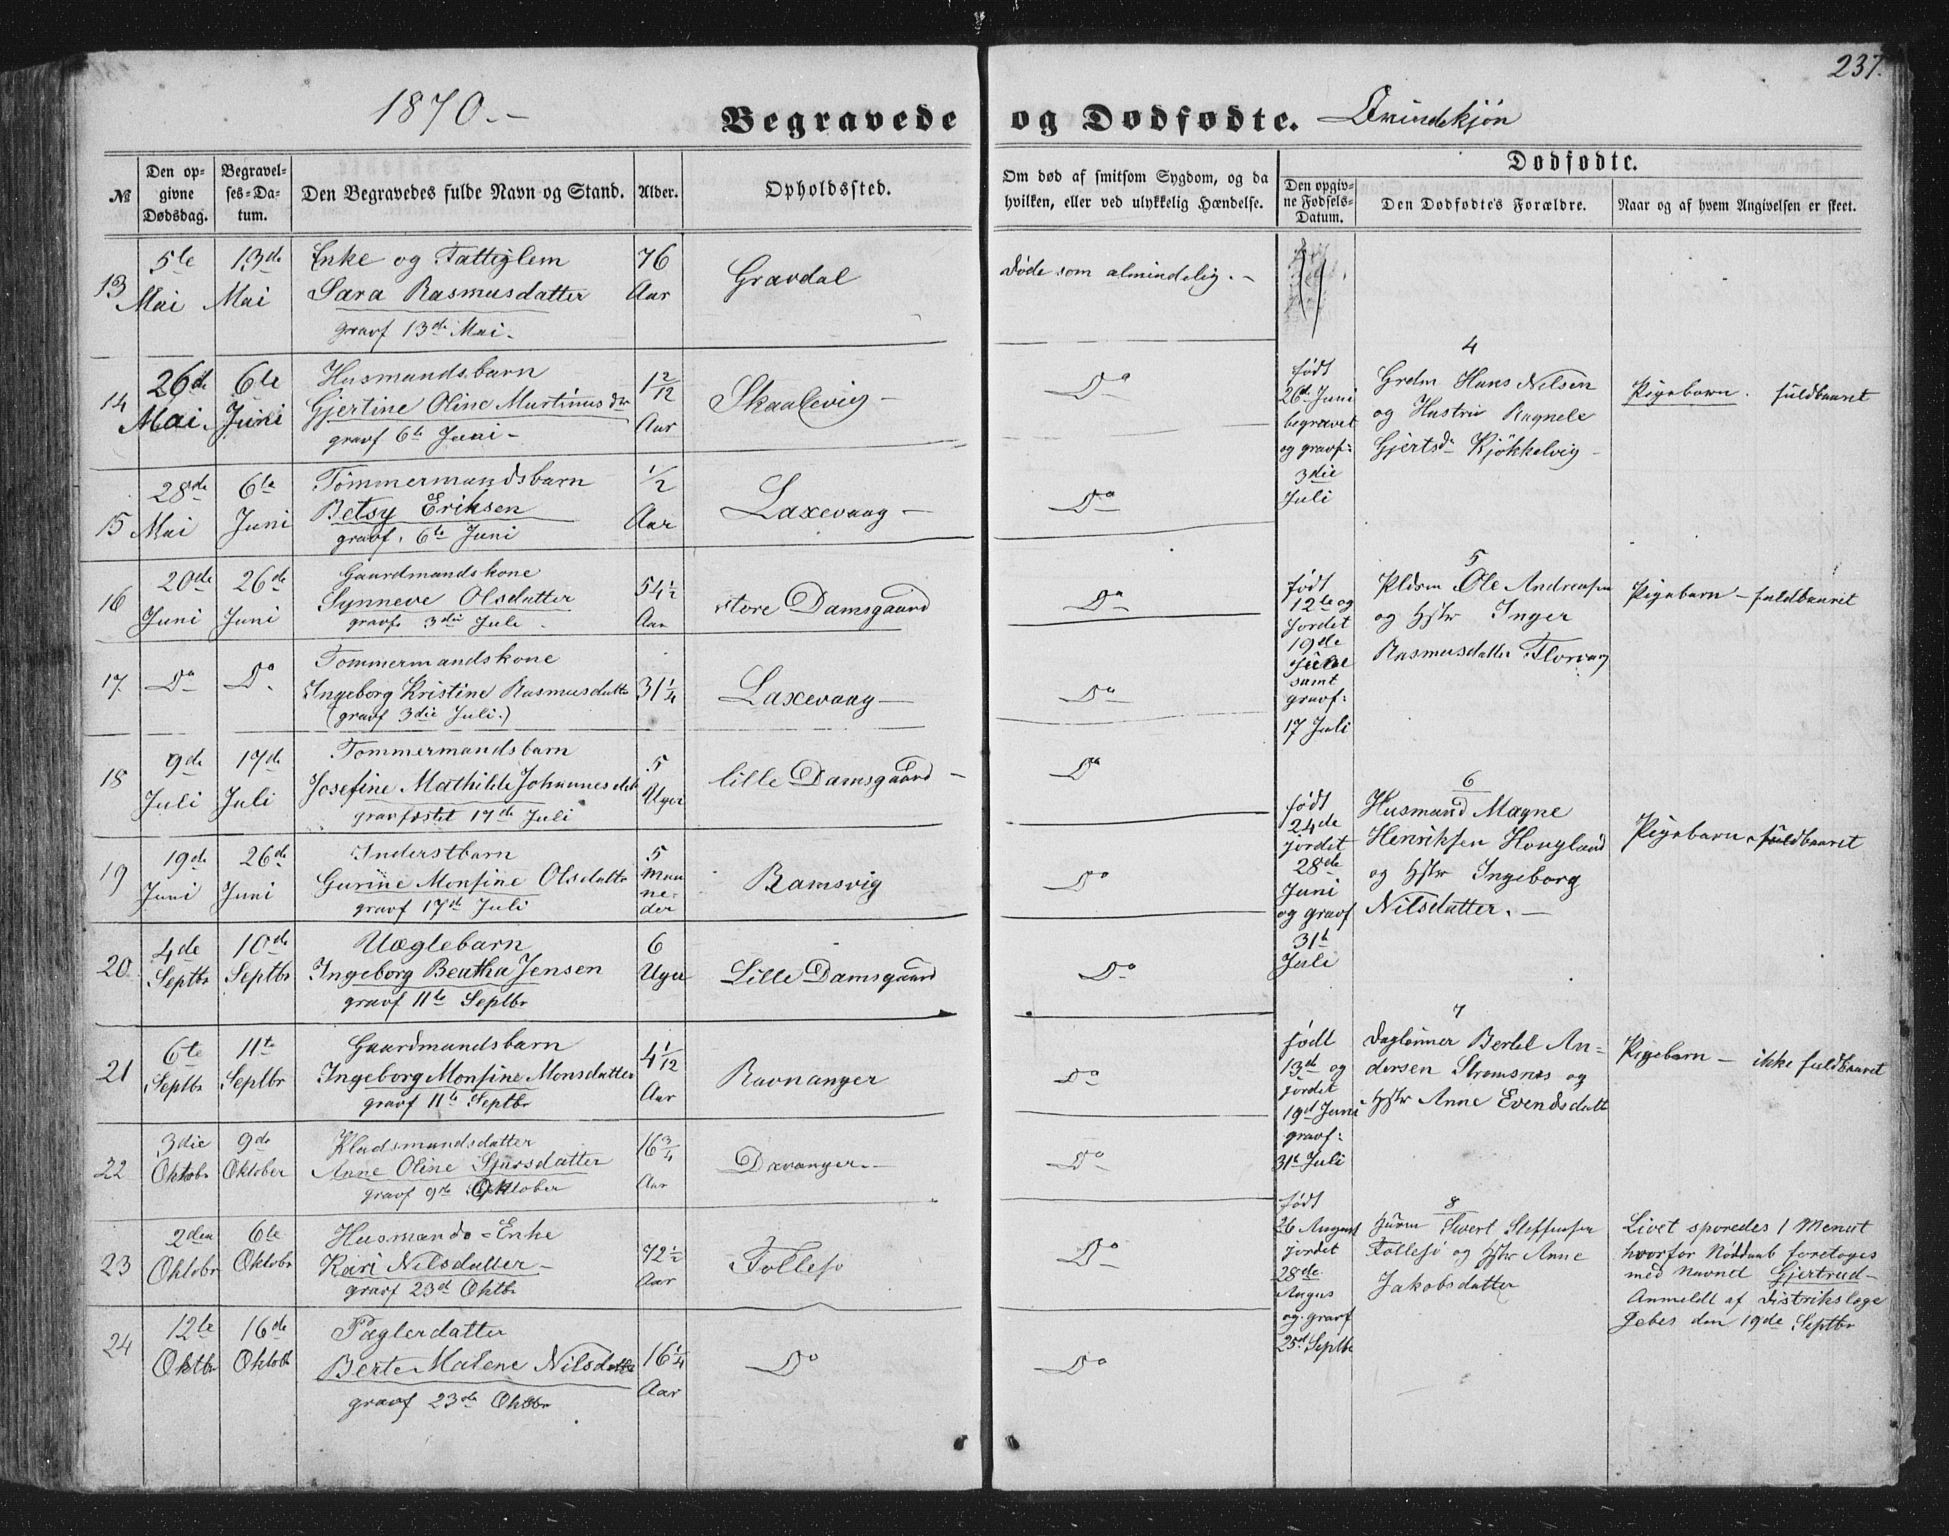 237.
1870.-
Begravede og Dødfødte. Qvindekjøn
Dødfødte.
№
Den opgivne Dødsdag.
Begravelses-Datum.
Den Begravedes fulde Navn og Stand.
Alder.
Opholdssted.
Om død af smitsom Sygdom, og da hvilken, eller ved ulykkelig Hændelse.
Den opgivne Fødsels-Datum.
Den Dødfødte's Forældre.
Naar og af hvem Angivelsen er skeet.
13 5te Mai 13de Mai
Enke og Fattiglem
Sara Rasmusdatter
gravf 13de Mai.
76 Aar
Gravdal
Døde som almindelig.-
14 26de Mai 6te Juni
Husmandsbarn
Gjertine Oline Martinusdtr
gravf 6te Juni-
1 2/12 Aar
Skaalevig-
Do
15 28de Mai 6te Juni
Tømmermandsbarn
Betsy Eriksen
gravf. 6te Juni
1/2 Aar
Laxevaag-
Do
16 20de Juni 26de Juni
Gaardmandskone
Synneve Olsdatter
gravf. 3die Juli.
54 1/2 Aar
store Damsgaard
Do
17. Do Do.
Tømmermandskone
Ingeborg Kristine Rasmusdattr
(gravf 3die Juli.)
31 1/4
Laxevaag-
Do
18 9de Juli 17de Juli
Tømmermandsbarn
Josefine Mathilde Johannesdtr
gravfæstet 17de Juli
5 Uger
lille Damsgaard-
Do
19 19de Juni 26de Juni
Inderstbarn
Gurine Monsine Olsdattr
gravf 17de Juli
5 Maaneder
Ramsvig
Do
20 4de Septbr 10de Septbr
Uægtebarn
Ingeborg Beatha Jensen
gravf 11te Septbr
6 Uger
Lille Damsgaard
Do
21 6te Septbr 11te Septbr
Gaardmandsbarn
Ingeborg Monsine Monsdatter
gravf 11te Septbr
4 1/12 Aar
Ravnanger
Do
22 3die Oktobr 9de Oktober
Pladsmandsdatter
Anne Oline Sjursdatter
gravf 9de Oktober
16 3/4 Aar
Davanger.-
Do
23 2den Oktobr 6te Oktobr
Husmands-Enke
Kari Nilsdatter-
gravf 23de Oktbr
72 1/2 Aar
Follesø
Do
24 12te Oktbr 16de Oktobr
Pæglerdatter
Berte Malene Nilsdatter
gravf 23de Oktbr
16 1/4 Aar
Do
Do
4
født
26de Juni
begravet
og gravf:
3die
Juli
Grdm Hans Nilsen
og Hustru Ragnele
Gjertsdr Kjøkkelvig-
Pigebarn. fuldbaaret
5
født
12te og
jordet
19de
Juni
samt
gravf:
17 Juli
Pldsm Ole Andreasen
og Hstr Inger
Rasmusdatter Florvaag
Pigebarn-fuldbaaret
6
født
24de
jordet
28de
Juni
og gravf
31te
Juli
Husmand Magne
Henriksen Hougland
og Hstr Ingeborg
Nilsdatter.-
Pigebarn-fuldbaaret
7
født
13de og
jordet
19de Juni
gravf:
31te Juli
Daglønner Bertel An=
dersen Strømsnæs og
Hstr Anne Evendsdatt
Pigebarn- ikke fuldbaaret
8
født
26 August
jordet
28de
Augus
og gravf
25de Septbr
Steffensen
Follesø og Hstr Anne
Jakobsdatter
Livet sporedes 1 Menut
hvorfor Nøddaab foretoges
med Navnet Gjertrud-
Anmeldt af Distrikslæge
Jebes den 19de Septbr